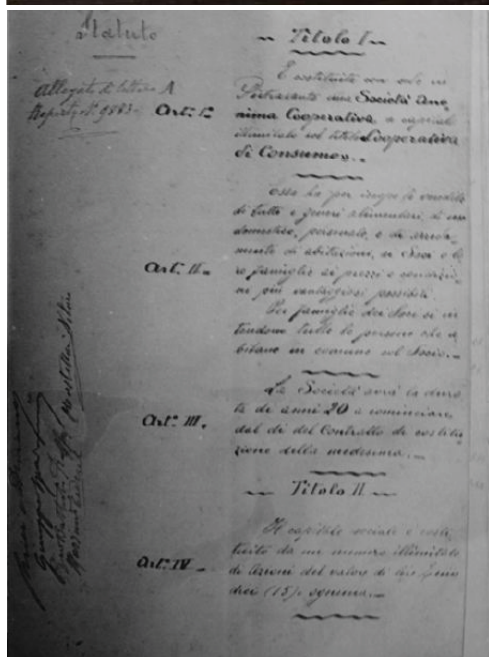 Statuto
Allegato di lettera A
Repert. N. 9883
~ Titolo I ~
Art. I.
È costituita con sede in
Pietrasanta una Società Ano-
nima Cooperativa a capitale
illimitato col titolo Cooperativa
di Consumo.
Art. II.
Essa ha per iscopo la vendita
di tutti i generi alimentari, di uso
domestico, personale, e di arreda-
mento di abitazione, ai Soci e lo
ro famiglie ai prezzi e condizio-
ni più vantaggiosi possibili.
Per famiglie dei Soci si in
tendono tutte le persone che a
bitano in comune col Socio.
Art. III.
La Società avrà la dura
ta de anni 20 a cominciare
dal dì del Contratto de costitu
zione della medesima.
~ Titolo II ~
Art. IV
Il capitale sociale è costi
tuito da un numero illimitato
di Azioni del valore di Lire Quin
dici (15). ognuna.